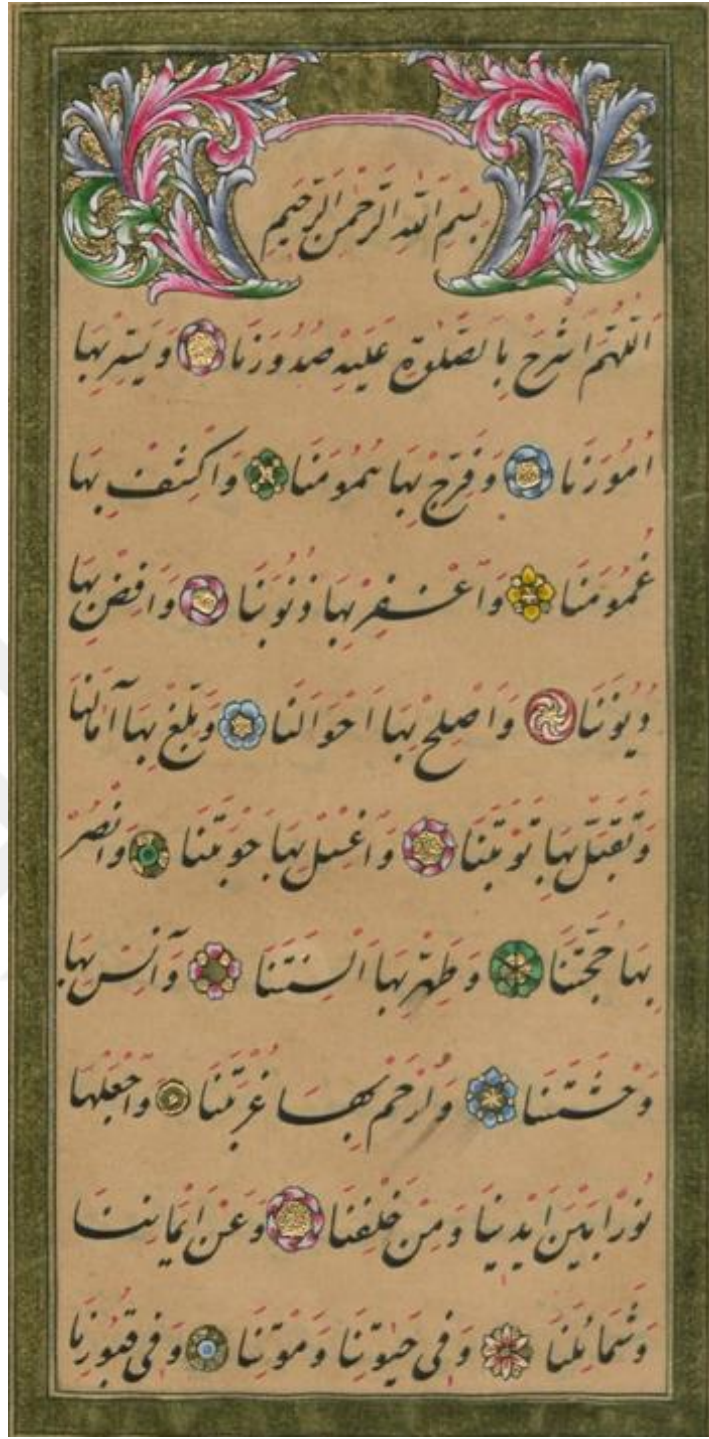 بِسْمِ اللّٰهِ الرَّحْمٰنِ الرَّحِيمِ
اَللّٰهُمَّ اشْرَحْ بِالصَّلٰوةِ عَلَيْهِ صُدُورَنَا وَيَسِّرْ بِهَا
اُمُورَنَا وَفَرِّجْ بِهَا هُمُومَنَا وَاكْشِفْ بِهَا
غُمُومَنَا وَاغْفِرْ بِهَا ذُنُوبَنَا وَاقْضِ بِهَا
دُيُونَنَا وَاَصْلِحْ بِهَا اَحْوَالَنَا وَبَلِّغْ بِهَا آمَالَنَا
وَتَقَبَّلْ بِهَا تَوْبَتَنَا وَاغْسِلْ بِهَا حَوْبَتَنَا وَانْصُرْ
بِهَا حُجَّتَنَا وَطَهِّرْ بِهَا اَلْسِنَتَنَا وَآنِسْ بِهَا
وَحْشَتَنَا وَارْحَمْ بِهَا غُرْبَتَنَا وَاجْعَلْهَا
نُورًا بَيْنَ اَيْدِينَا وَمِنْ خَلْفِنَا وَعَنْ اَيْمَانِنَا
وَشَمَائِلِنَا وَفِى حَيٰوتِنَا وَمَوْتِنَا وَفِى قُبُورِنَا